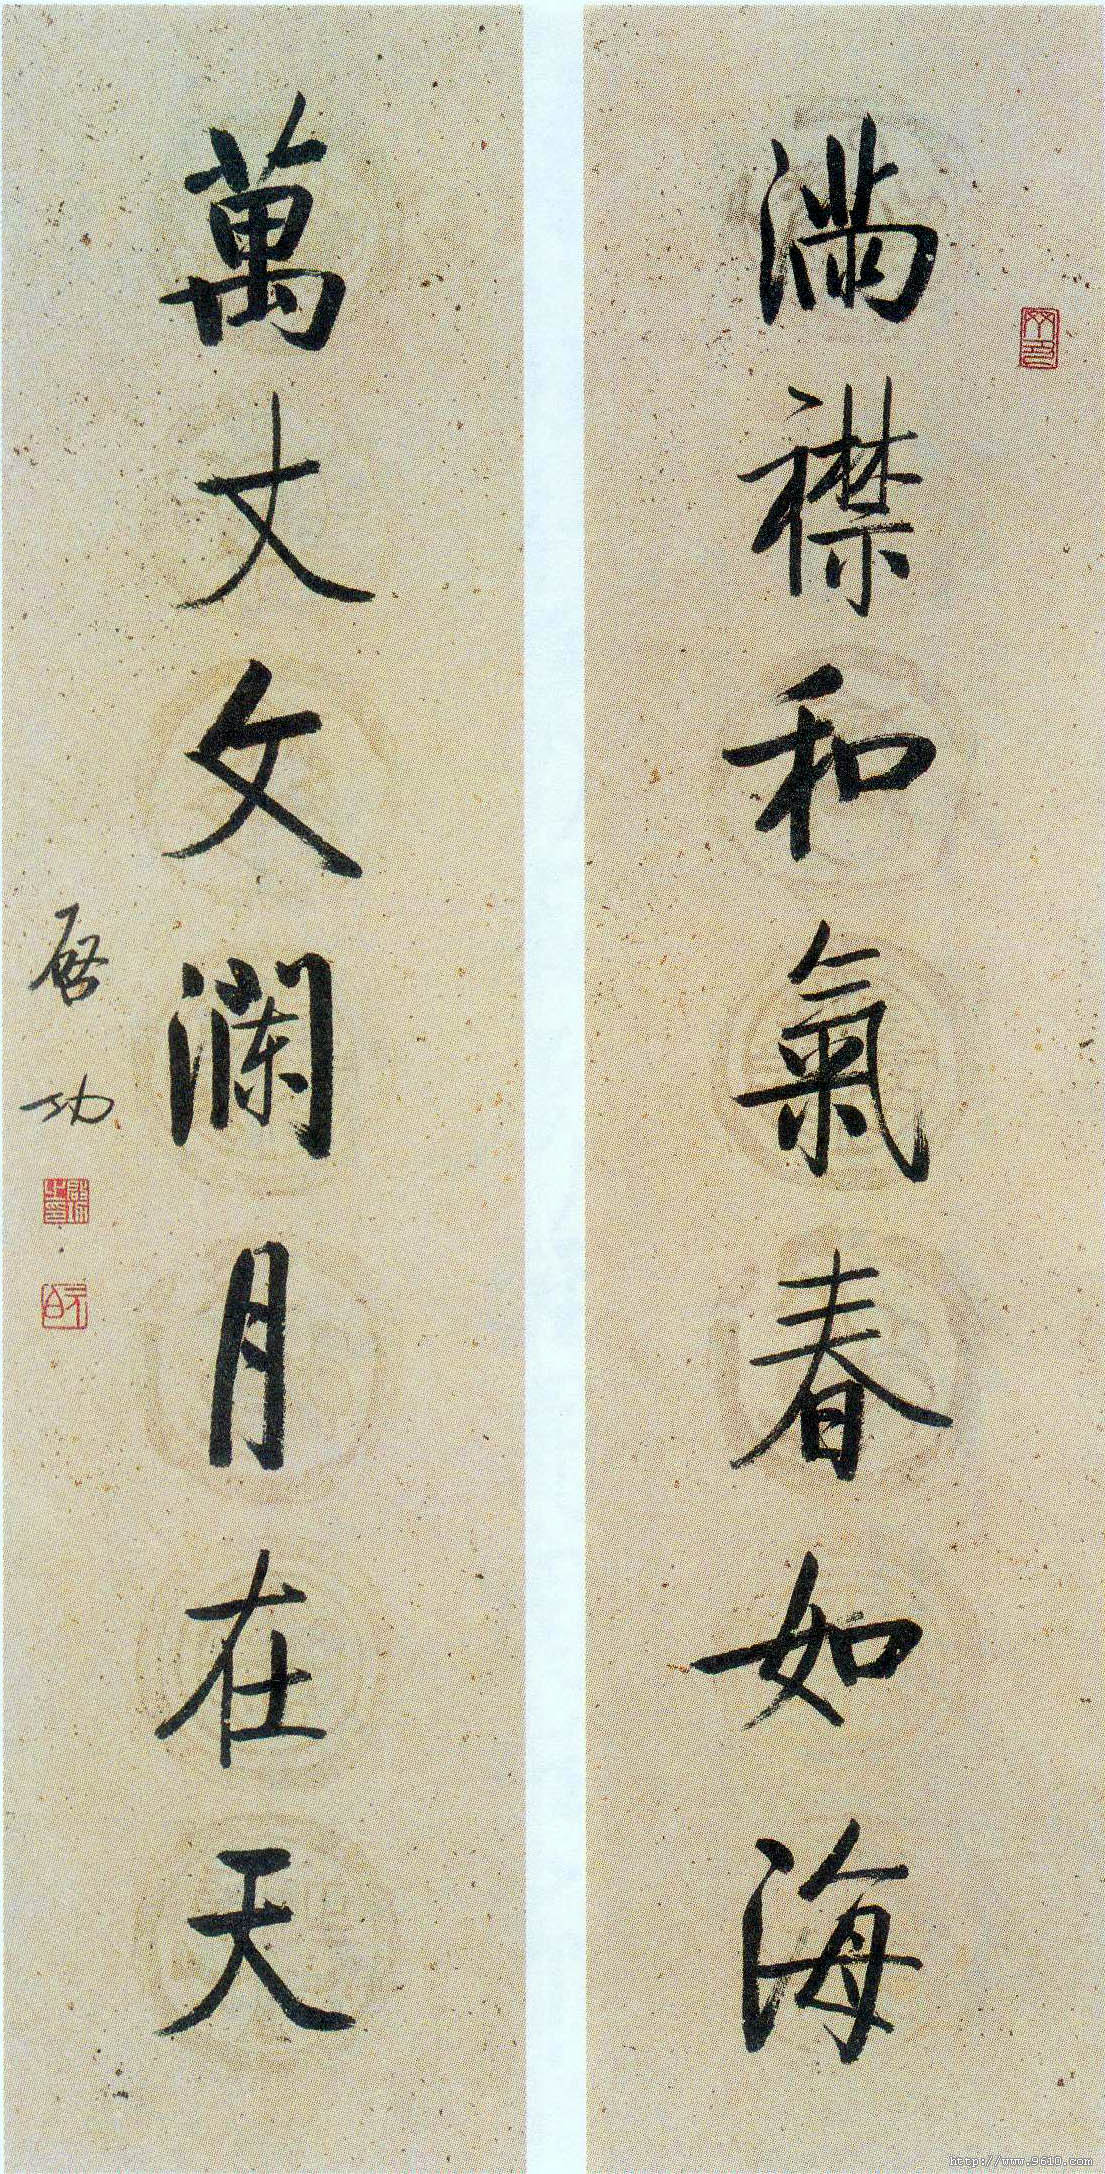 滿襟和氣春如海
萬丈文瀾月在天
啟功
啟功之印
元白
http://www.9610.com